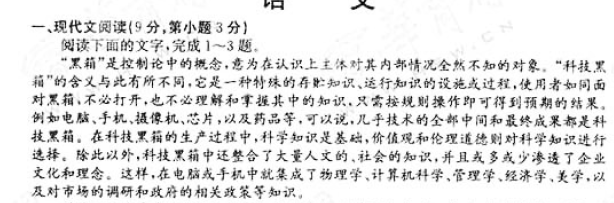 语 文
一、现代文阅读(9分,第小题3分)
阅读下面的文字,完成1～3题。
“黑箱”是控制论中的概念,意为在认识上主体对其内部情况全然不知的对象。“科技黑
箱”的含义与此有所不同,它是一种特殊的存贮知识、运行知识的设施或过程,使用者如同面
对黑箱,不必打开,也不必理解和掌握其中的知识,只需按规则操作即可得到预期的结果。
例如电脑、手机、摄像机、芯片,以及药品等,可以说,几乎技术的全部中间和最终成果都是科
技黑箱。在科技黑箱的生产过程中,科学知识是基础,价值观和伦理道德则对科学知识进行
选择。除此以外,科技黑箱中还整合了大量人文的、社会的知识,并且或多或少渗透了企业
文化和理念。这样,在电脑或手机中就集成了物理学、计算机科学、管理学、经济学、美学,以
及对市场的调研和政府的相关政策等知识。